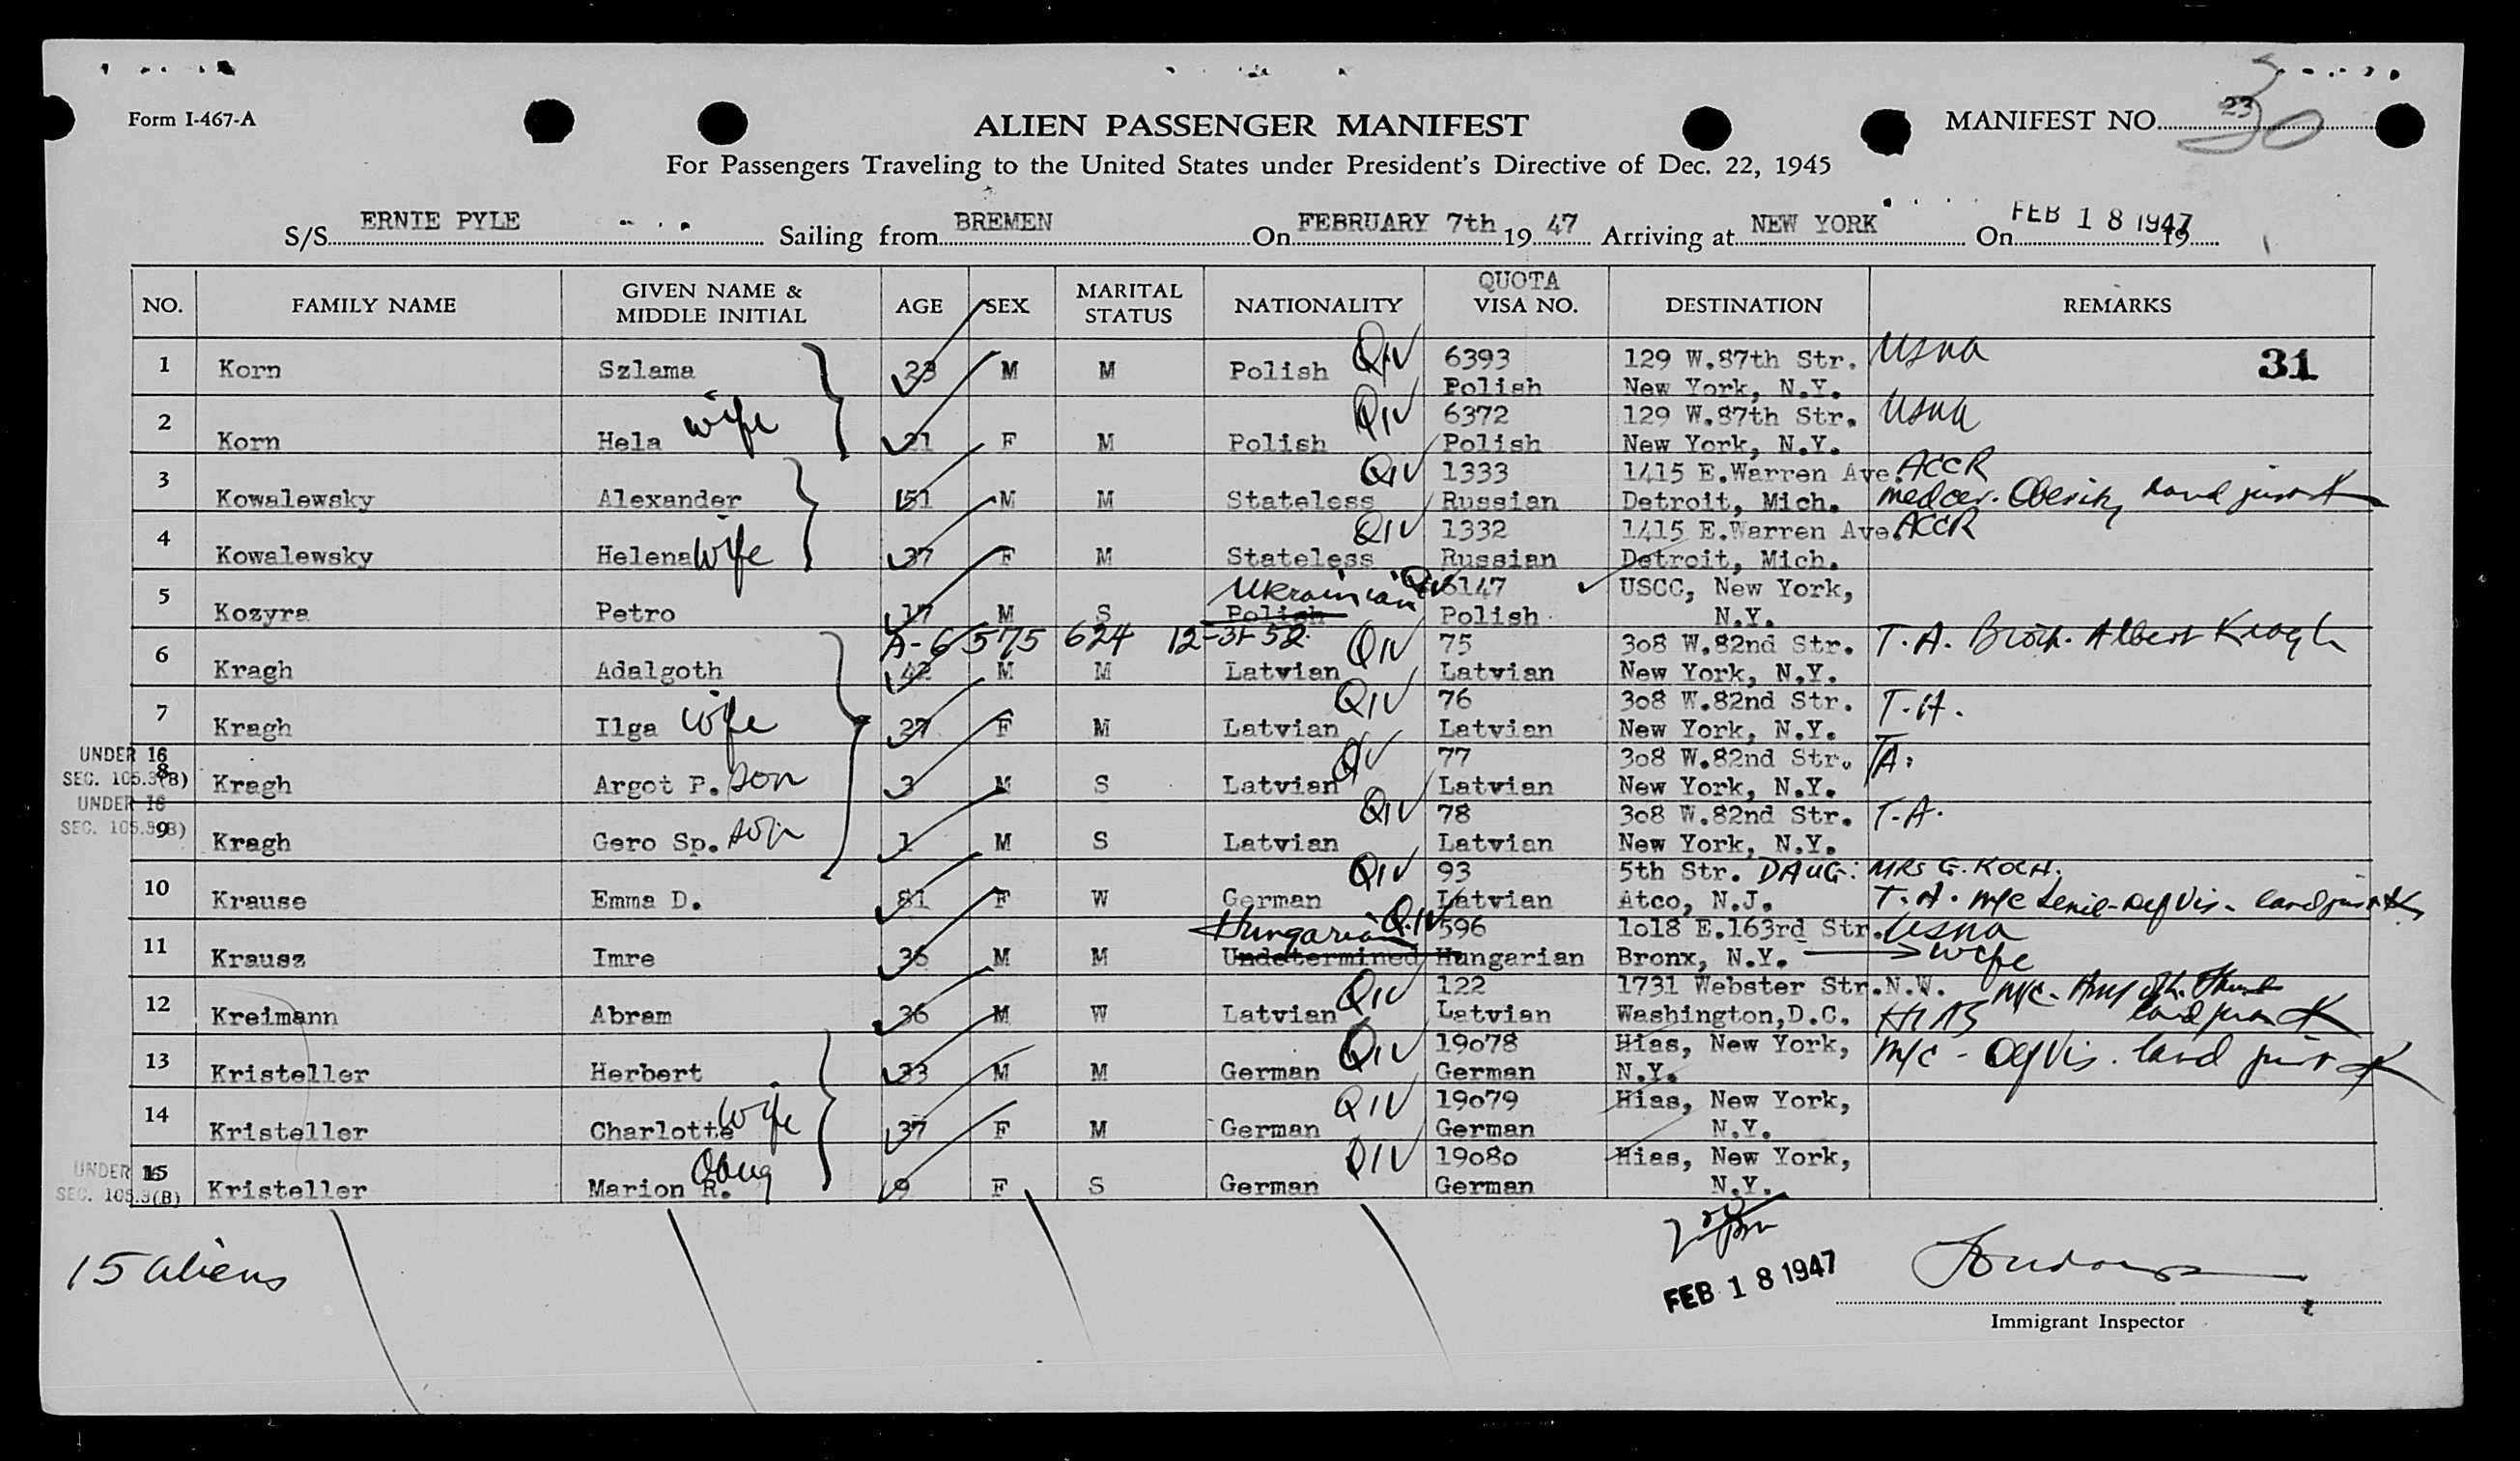 Form I-467-A
ALIEN PASSENGER MANIFEST
MANIFEST NO. 23 30
For Passengers Traveling to the United States under President's Directive of Dec. 22, 1945
S/S ERNIE PYLE Sailing from BREMEN On FEBRUARY 7th 19 47 Arriving at NEW YORK On FEB 18 1947 19
NO. FAMILY NAME GIVEN NAME & MIDDLE INITIAL AGE SEX MARITAL STATUS NATIONALITY QUOTA VISA NO. DESTINATION REMARKS
31
1 Korn Szlama 23 M M Polish QIV 6393 Polish 129 W.87th Str. New York, N.Y. USNA
2 Korn Hela wife 21 F M Polish QIV 6372 Polish 129 W.87th Str. New York, N.Y. USNA
3 Kowalewsky Alexander 51 M M Stateless QIV 1333 Russian 1415 E.Warren Ave. Detroit, Mich. ACCR med cer. Obesity land
4 Kowalewsky Helena wife 37 F M Stateless QIV 1332 Russian 1415 E.Warren Ave. Detroit, Mich. ACCR
5 Kozyra Petro 17 M S Polish Ukrainian QIV 6147 Polish USCC, New York, N.Y.
A-6 575 624 12-31-52
6 Kragh Adalgoth 42 M M Latvian QIV 75 Latvian 308 W.82nd Str. New York, N.Y. T.A. Broth. Albert Kragh
7 Kragh Ilga wife 27 F M Latvian QIV 76 Latvian 308 W.82nd Str. New York, N.Y. T.A.
UNDER 16 SEC. 105.3(B)
8 Kragh Argot P. son 3 M S Latvian QIV 77 Latvian 308 W.82nd Str. New York, N.Y. TA.
UNDER 16 SEC. 105.3(B)
9 Kragh Gero Sp. son 1 M S Latvian QIV 78 Latvian 308 W.82nd Str. New York, N.Y. T.A.
10 Krause Emma D. 81 F W German QIV 93 Latvian 5th Str. Atco, N.J. DAUG: MRS G. KOCH. T.A. M/C Senil-Def Vis- land
11 Krausz Imre 36 M M Undetermined Hungarian QIV 596 Hungarian 1018 E.163rd Str. Bronx, N.Y. USNA wife
12 Kreimann Abram 36 M W Latvian QIV 122 Latvian 1731 Webster Str.N.W. Washington,D.C. HIAS M/C- land
13 Kristeller Herbert 33 M M German QIV 19078 German Hias, New York, N.Y. M/C - Def Vis. land
14 Kristeller Charlotte wife 37 F M German QIV 19079 German Hias, New York, N.Y.
UNDER 16 SEC. 105.3(B)
15 Kristeller Marion R. Daug 9 F S German QIV 19080 German Hias, New York, N.Y.
15 aliens
FEB 18 1947
Immigrant Inspector